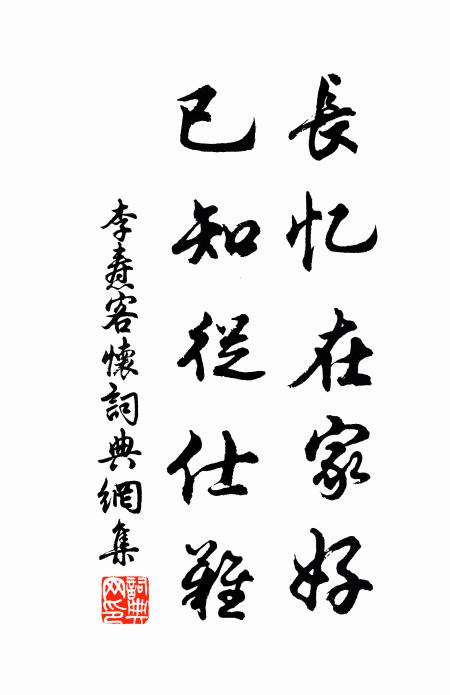 長忆在家好
已知從仕難
李燾客懷詞典網集
詞典
网印